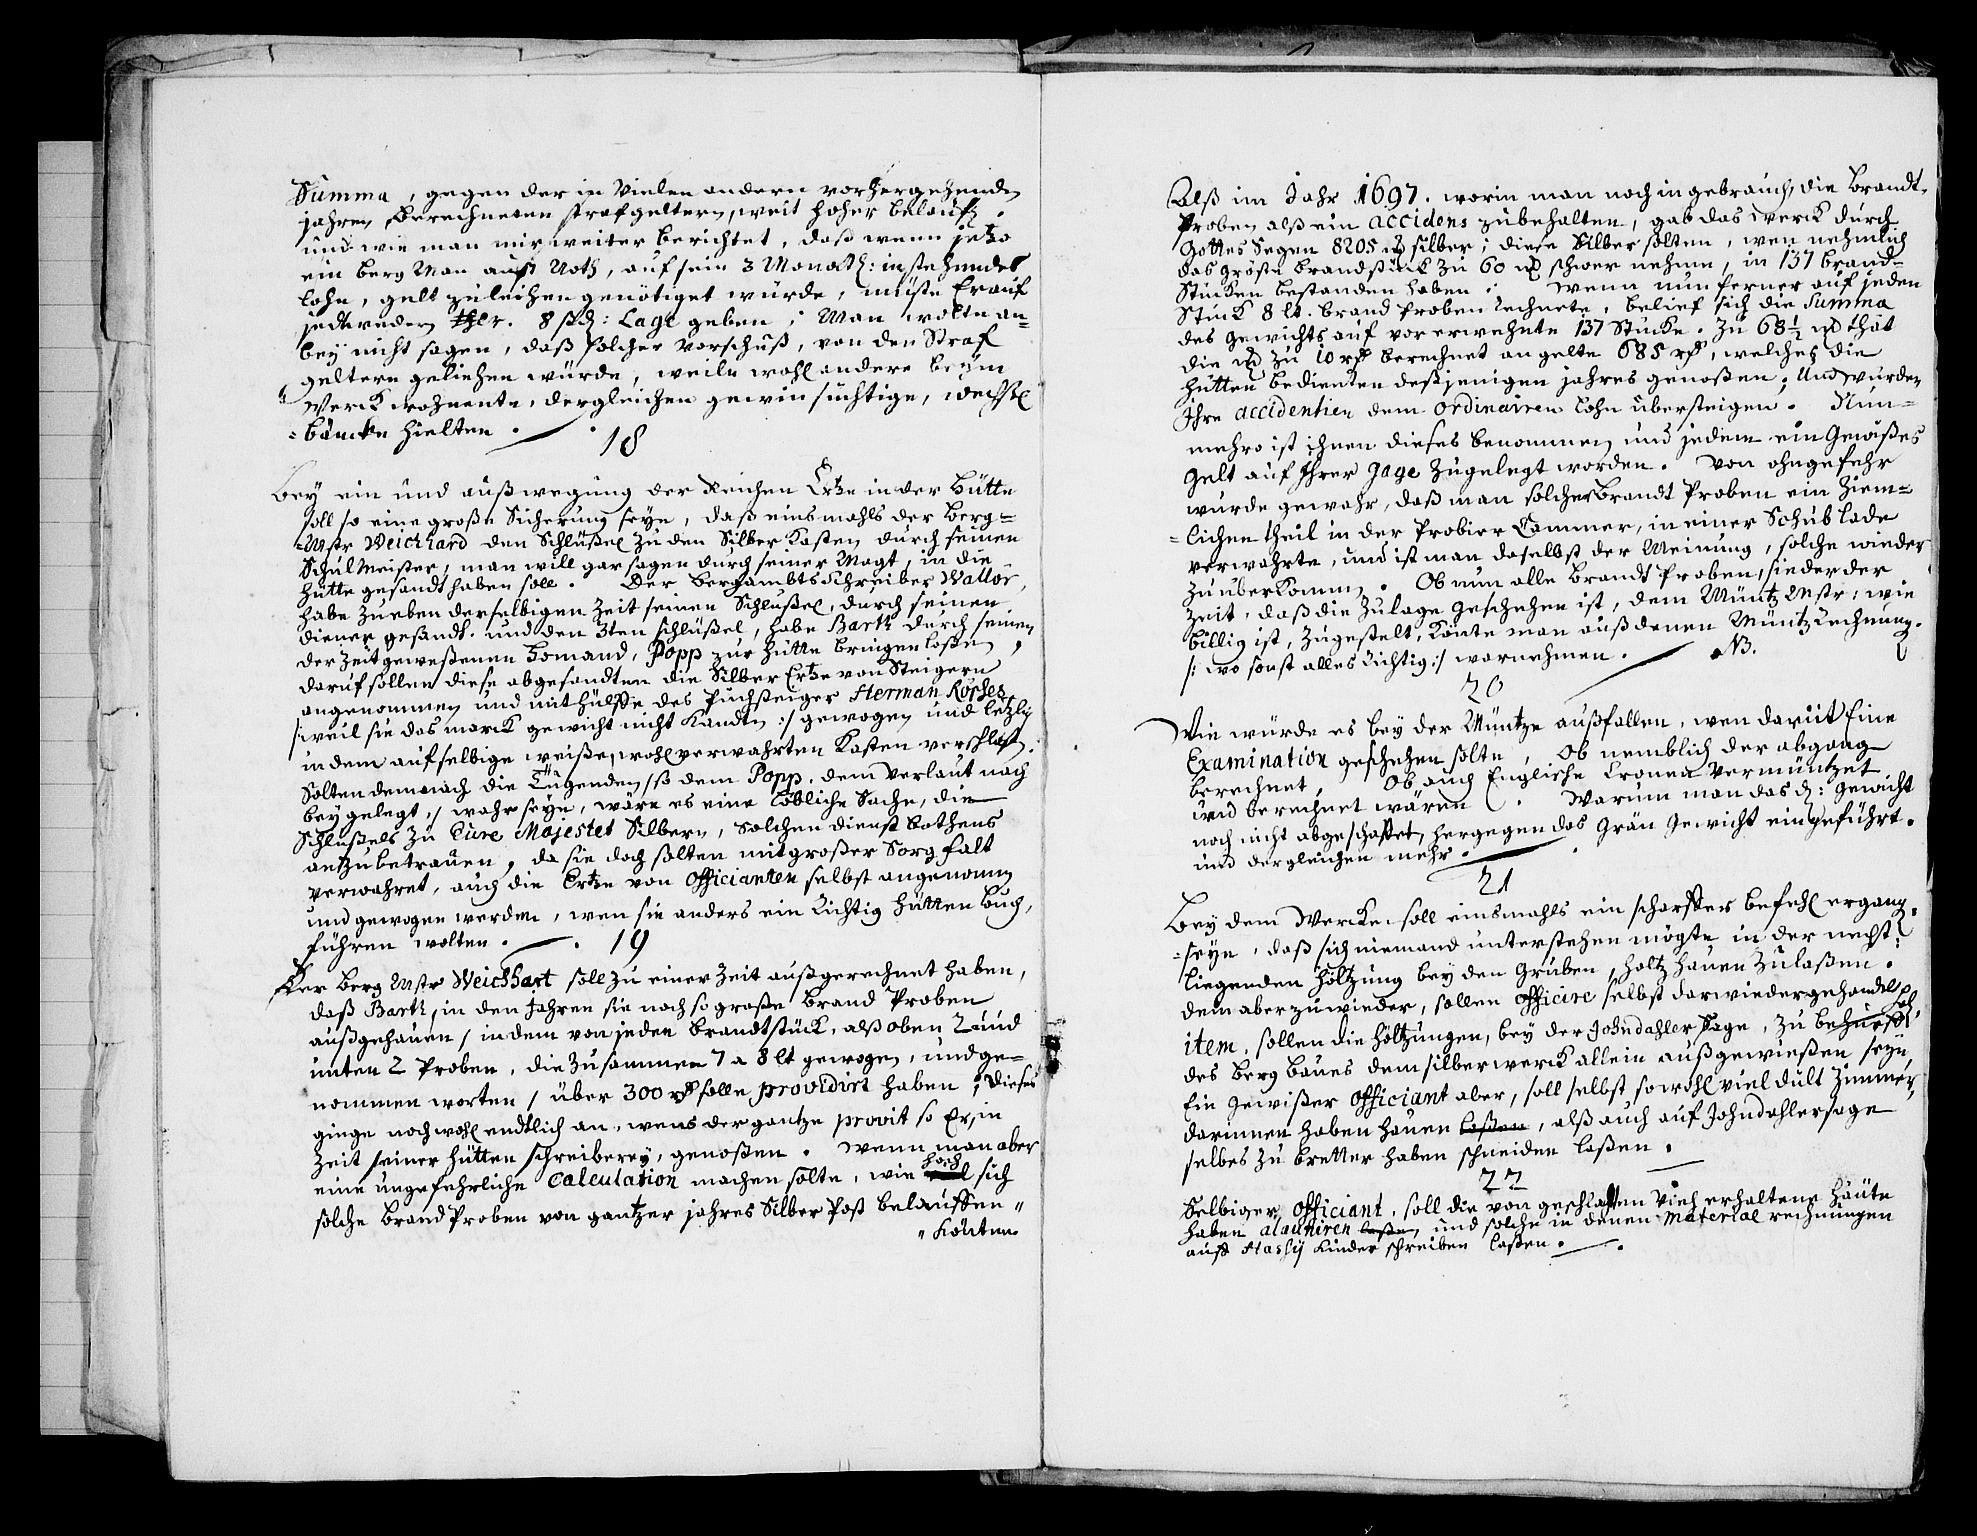 Summa, gegen der in Vielen andern vorhergehenden
jahren Berechneten strafgeltern, weit hoher belauft.
und wie man mir weiter berichtet, daß wenn jetzo
ein berg Man auß Noth, auf sein 3 Monath: instehendes
lohn, gelt zuleihen genötiget würde, müste Er auf
jedtweden thlr. 8 ßd: Lage geben; Man wolte an-
bey nicht sagen, daß solcher vorschuß, von den Straf
geltern geliehen würde, weiln wohl andere beym
Werck wohnente, dergleichen gewinsüchtige, wechsel
-bäncke hielten.
18
Bey ein und außwegung der Reichen Ertze in der Hütte
soll so eine große Sicherung seyn, daß einsmahls der berg-
-Mstr Weichard den Schlüßel zu den Silber Kasten durch seinen
Schül Meister, man will gar sagen durch seiner Magt, in die
Hütte gesandt haben soll. Der bergambts Schreiber Wallor,
habe zu eben derselbigen Zeit seinen Schlüßel, durch seinen
diener gesandt. und den 3ten schlüßel, habe Barth durch seinen
der zeit geweßenen Popp zur Hütte bringen laßen,
darauf sollen diese abgesandten die Silber Ertze von Steigern
angenommen und mit hülffe des Puchsteiger Herman Körhes
/: weil sie das marck gewicht nicht kandten :/ gewogen und letzlich
in dem auf selbige weiße, wohl verwahrten Kasten
Solten demnach die Tugenden /: so dem Popp. dem Verlaut nach
bey gelegt :/ wahr seyn, wäre es eine löbliche Sache, die
Schlüßels zu Eure Majestet Silbern, solchen dienst bothens
anzubetrauen, da sie doch solten mit großer Sorgfalt
verwahret, auch die Ertze von Officianten selbst angenommen
und gewogen werden, wen sie anders ein Richtig Hütten Buch,
führen wolten.
19
Der berg Mstr Weichhart soll zu einer Zeit außgerechnet haben,
daß Barth, in den Jahren sie noch so große brand Proben
außgehauen / in dem von jeden brandtstück, alß oben 2 und
unten 2 Proben, die zusammen 7 a 8 lt gewogen, und ge-
nommen worten / über 300 rß solle providirt haben; Dieses
ginge noch wohl endtlich an, wens der gantze provit so Er, in
Zeit seiner Hütten schreiberey, genoßen. Wenn man aber
eine ungefehrliche Calculation machen solte, wie hoch sich
solche brand Proben von gantzer jahres Silber Post belauffen
Könten
Alß im Jahr 1697. worin man noch in gebrauch, die brandt-
Proben alß ein accidens zubehalten, gab das Werck durch
Gottes Segen 8205 silber; diese Silber solten, wen nehmlich
das gröste brandstück zu 60 schwer nehme, in 137 brand-
Stücken bestanden haben: Wenn nun ferner auf jeden
Stück 8 lt. brand Proben rechnete, belief sich die Summa
des gewichts auf vor erwehnte 137 Stücke. zu 68½ that
die zu 10 rß berechnet an gelte 685 rß, welches die
Hütten bedienten deßjenigen jahres genoßen. Und wurden
Ihre accidentien dem ordinairen lohn übersteigen. Nun-
mehro ist ihnen dieses benommen und jedem ein Gewißes
gelt auf Ihrer gage zugelegt worden. Von ohngefehr
wurde gewahr, daß man solcher brandt Proben ein Ziem-
-lichen theil in der Probier Cammer, in einer Schub lade
verwahrte, und ist man daselbst der Meinung, solche wieder
zu überkommen. Ob nun alle brandt Proben, sieder der
Zeit, daß die Zulage geschehen ist, dem Müntz Mstr: wie
billig ist, zugestelt, Könte man auß denen Müntz Rechnung.
/: wo sonst alles Richtig :/ wornehmen. NB.
20
Wie würde es bey der Müntze außfallen, wen damit Eine
Examination geschehen solte, Ob nemblich der abgang
berechnet, Ob auch Englische Cronen Vermüntzet
und berechnet wären. Warum man das d: gewicht
noch nicht abgeschaffet, hergegen das Grän gewicht eingeführt.
und dergleichen mehr.
21
Bey dem Wercke soll einsmahls ein scharffer befehl ergang
-seyn, daß sich niemand unterstehen mögte in der nechst
liegenden höltzung bey den Gruben, holtz hauen zulaßen.
dem aber zuwieder, sollen officire selbst darwieder gehandelt,
item, sollen die höltzungen, bey der Johndahler Sage, zu behuf
des berg baues dem silberwerck allein außgewießen seyn
Ein gewißer Officiant aber, soll selbst, sowohl viel dült Zimmer,
darinnen haben hauen laßen, alß auch auf Johndahlersage
selbes zu bretter haben schneiden laßen.
22
Selbiger Officiant, soll die von geschlachten Vieh erhaltene häute
haben alauniren laßen und solche in denen Material rechnungen
auff kinder schreiben laßen.